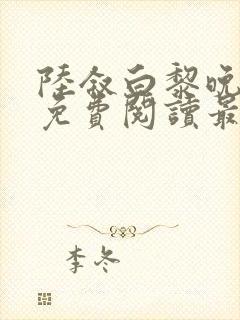 陸敘白黎晚
免費閱讀最
李冬